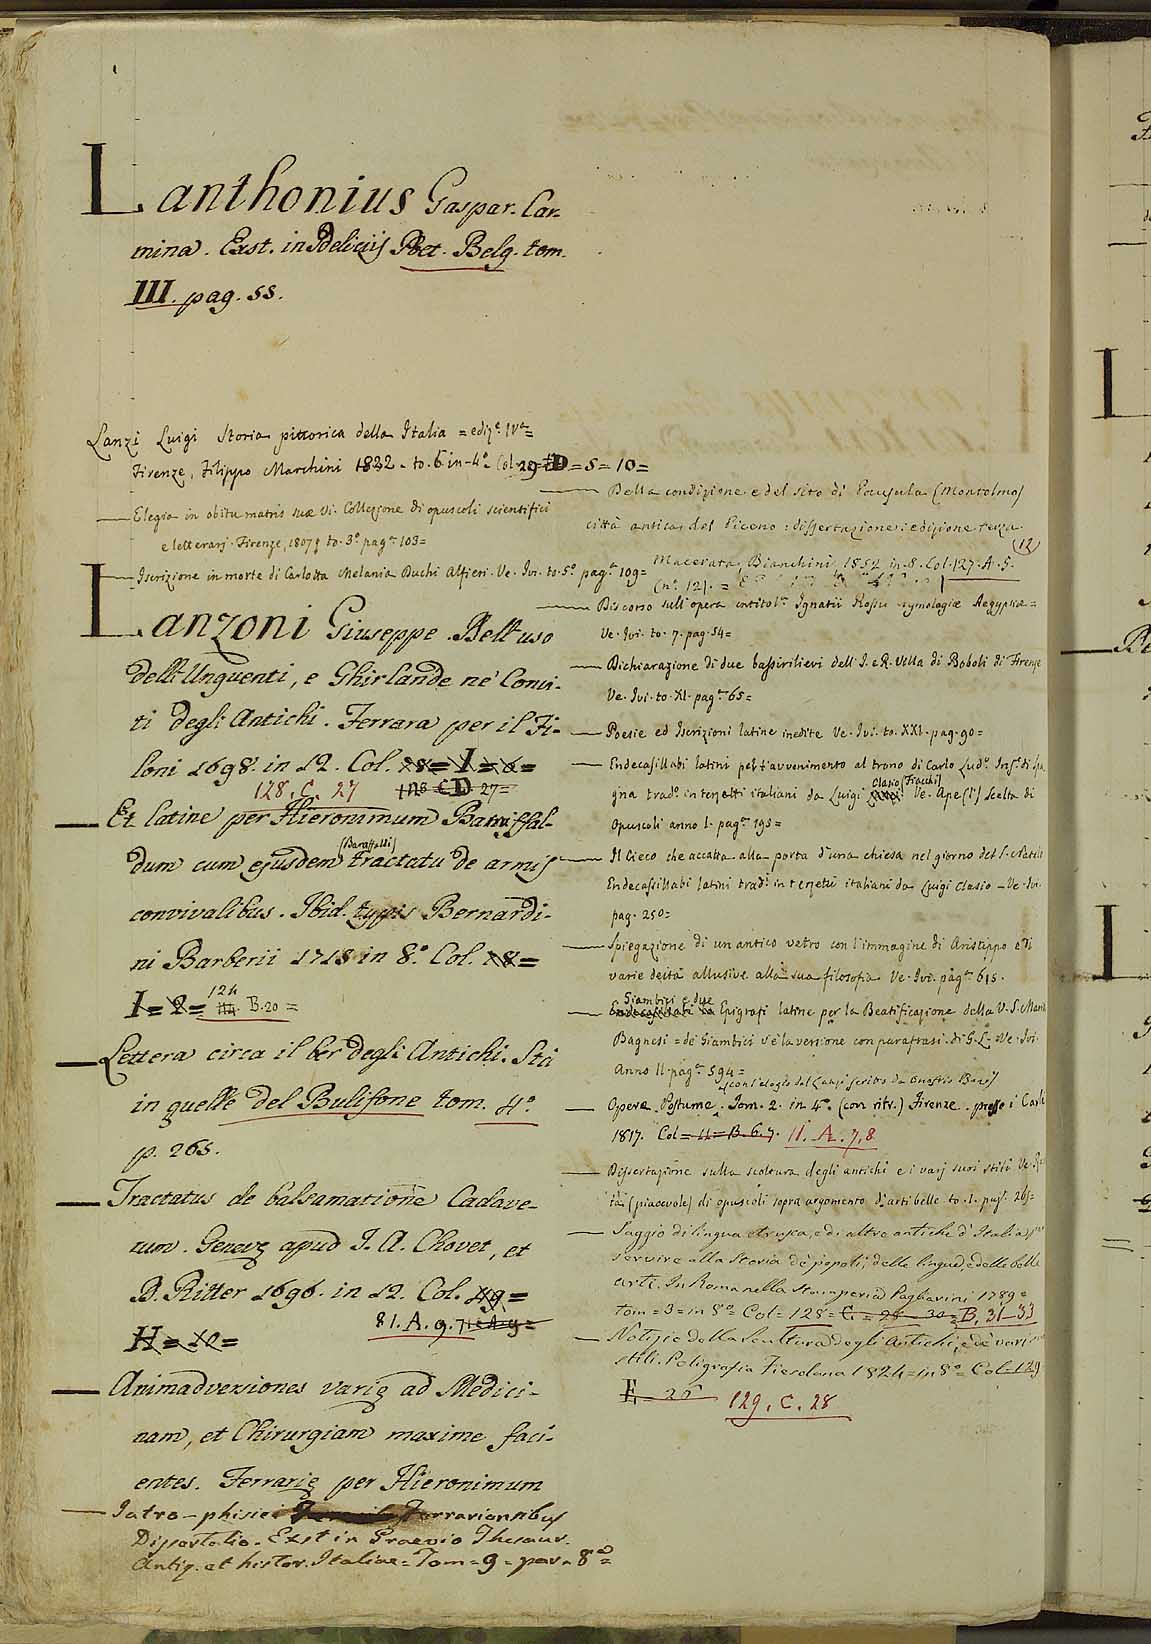 Lanthonius Gaspar. Car-
mina. Exst. in deliciis Poet. Belg. tom.
III. pag. 55.
Lanzi Luigi Storia pittorica della Italia = ediz.e IVa =
Firenze, Filippo Marchini 1822 - to. 6 in-4o Col. 29 = D = 5 = 10 =
— Elegia in obitu matris suæ Vi. Collezione di opuscoli scientifici
e letterarj. Firenze, 1807 to. 3o pag.a 103 =
— Iscrizione in morte di Carlotta Melania Duchi Alfieri. Ve. Ivi. to. 5o pag.a 109 =
Lanzoni Giuseppe. Dell'uso
delli Unguenti, e Ghirlande ne' Convi-
ti degli Antichi. Ferrara per il Fi-
loni 1698. in 12. Col. = I =
128. C. 27 D 27 =
— Et latine per Hieronimum Baruffal-
(Baruffalli)
dum cum ejusdem tractatu de armis
convivalibus. Ibid. typis Bernardi-
ni Barberii 1713 in 8.o Col. 18 =
I = 2 = 124 B. 20 =
— Lettera circa il ber degli Antichi. Sta
in quelle del Bulifone tom. 4o.
p. 265.
— Tractatus de balsamatione Cadave-
rum. Genevę apud J. A. Chovet, et
D. Ritter 1696. in 12. Col. 49 =
H = 10 = 81. A. 9.
— Animadversiones varię ad Medici-
nam, et Chirurgiam maxime faci-
entes. Ferrarię per Hieronimum
— Iatro-phisici Ferrariensibus
Dissertatio. Exst in Graevio Thesaur.
Antiq. et histor. Italiae = Tom = 9 = par = 8a =
— Della condizione e del sito di Pausula (Montolmo)
città antica del Piceno : dissertazione : edizione terza
(12)
Macerata, Bianchini, 1852 in 8. Col. 127. A. 5.
(no. 12). =
— Discorso sull'opera intitol.a Ignatii Rossii Etymologiæ Aegyptiæ =
Ve. Ivi. to. 7. pag. 54 =
— Dichiarazione di due bassirilievi dell'I. e R. Villa di Boboli di Firenze
Ve. Ivi. to. XI. pag.a 65 =
— Poesie ed Iscrizioni latine inedite Ve. Ivi. to. XXI. pag. 90 =
— Endecasillabi latini per l'avvenimento al trono di Carlo Lud.o Inf.e di Spa
Clasio (Fiacchi)
gna trad.i in terzetti italiani da Luigi Ve. Ape (l') Scelta di
Opuscoli anno I. pag.a 195 =
— Il Cieco che accatta alla porta d'una chiesa nel giorno del S. Natale
Endecasillabi latini trad.i in terzetti italiani da Luigi Clasio — Ve. Ivi.
pag. 250 =
— Spiegazione di un antico vetro con l'immagine di Aristippo e di
varie deità allusive alla sua filosofia Ve. Ivi. pag.a 615.
Giambici e due
— Epigrafi latine per la Beatificazione della V. S. Maria
Bagnesi = de' Giambici v'è la versione con parafrasi di G. L. = Ve. Ivi.
Anno II. pag.a 594 =
con l'elogio del Lanzi scritto da Onofrio Boni)
— Opere Postume. Tom. 2. in 4o. (con ritr.) Firenze. presso i Carli
1817. Col = 11 = B. 6. 7. 11. A. 7, 8
— Dissertazione sulla scoltura degli antichi e i varj suoi stili Ve.
tà (piacevole) di opuscoli sopra argomento d'arti belle to. I. pag. 26 =
— Saggio di lingua etrusca, e di altre antiche d'Italia, per
servire alla Storia de' popoli, delle lingue, e delle belle
arti. In Roma nella Stamperia Pagliarini 1789 =
tom = 3 = in 8o = Col = 128 = C = 28 - 30 = B. 31-33
— Notizie della Scultura degli antichi, e de' vari suoi
stili. Poligrafia Fiesolana 1824 = in 8o = Col = 129
E = 26 129. C. 28